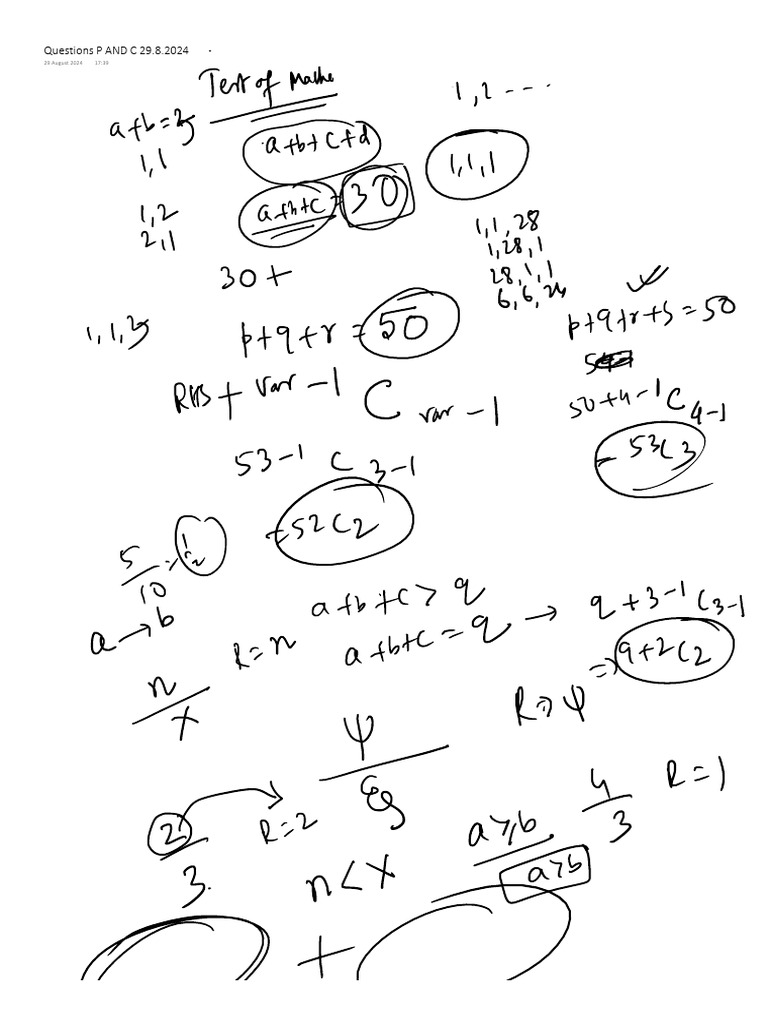 Questions P AND C 29.8.2024
29 August 2024 17:39
Test of Mathe
1, 2 ----
a+b=2
1,1
a+b+c+d
1,1,1
a+b+c = 30
1,2
2,1
1,1,28
1,28,1
28,1,1
6,6,24
30+
1,1,2
p+q+r = 50
p+q+r+s = 50
RHS + var -1 C var -1
50+4-1 C 4-1
53-1 C 3-1
= 53C3
= 52C2
5/10 = 1/2
a → b
a+b+c > q
R = n
a+b+c = q → q+3-1 C 3-1
⇒ q+2C2
n/x
R ⇒ ψ
ψ
4/3 R=1
2/3 R=2
a≥b
a>b
n < x
+